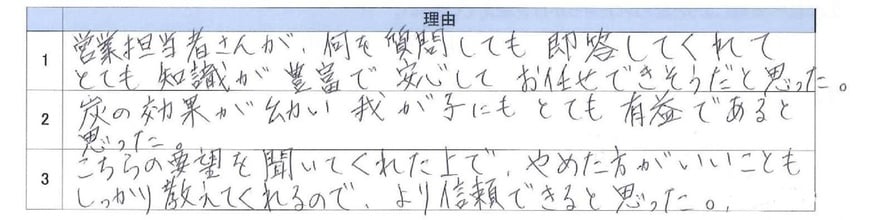 理由
1 営業担当者さんが、何を質問しても即答してくれて
とても知識が豊富で安心してお任せできそうだと思った。
2 炭の効果が幼い我が子にもとても有益であると
思った。
3 こちらの要望を聞いてくれた上で、やめた方がいいことも
しっかり教えてくれるので、より信頼できると思った。